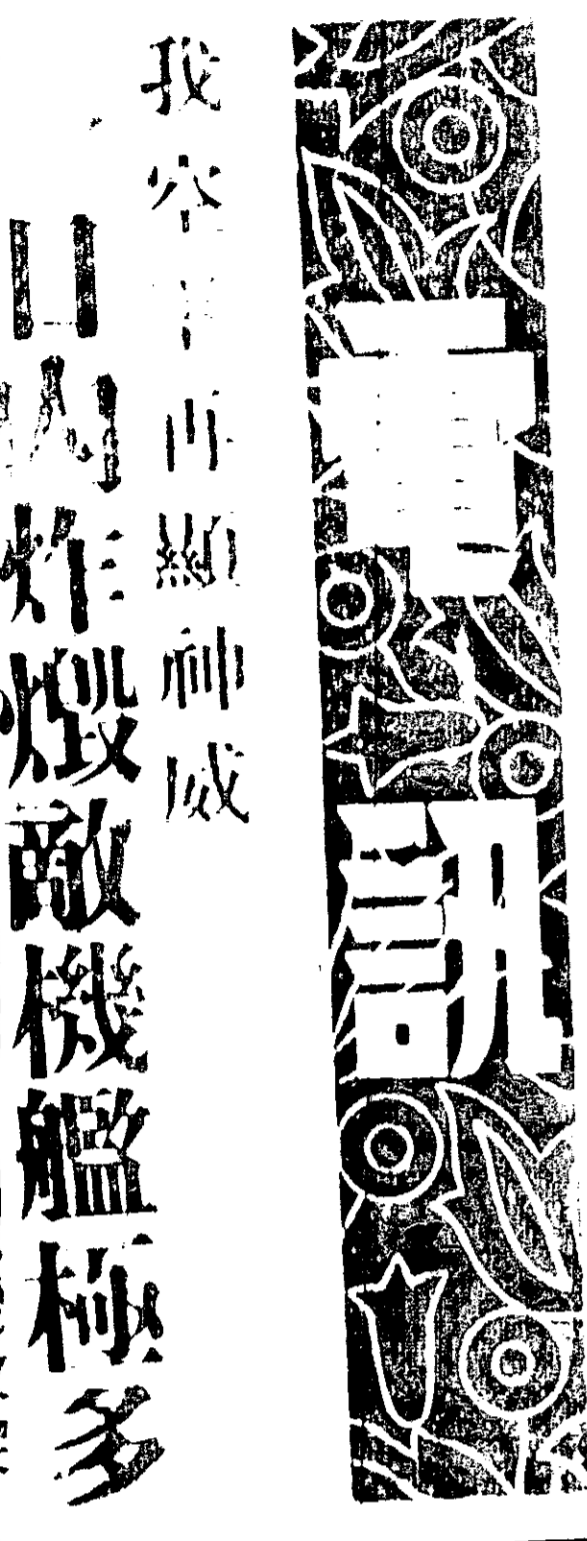 電訊
我空軍再顯神威
日內炸燬敵機艦極多